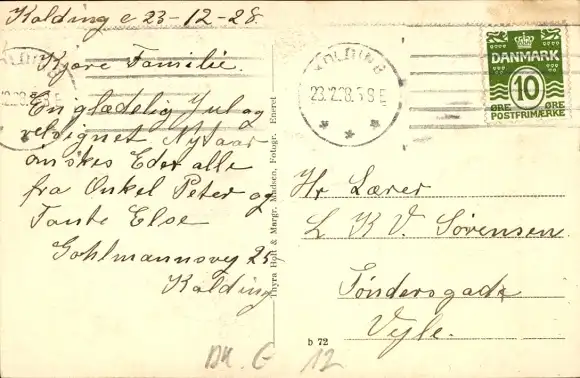 Kolding d 23-12-28.
Kjære Familie.
En glædelig Jul og
velsignet Nytaar
ønskes Eder alle
fra Onkel Peter og
Tante Else
Gohlmannsvej 25
Kolding
KOLDING
23.12.28.5-9 E
DANMARK
10
ØRE ØRE
POSTFRIMÆRKE
Hr Lærer
L K V. Sørensen
Tøndersgade
Vejle.
Thyra Hoff & Margr. Madsen, Fotogr. Eneret
b 72
DK. G 12